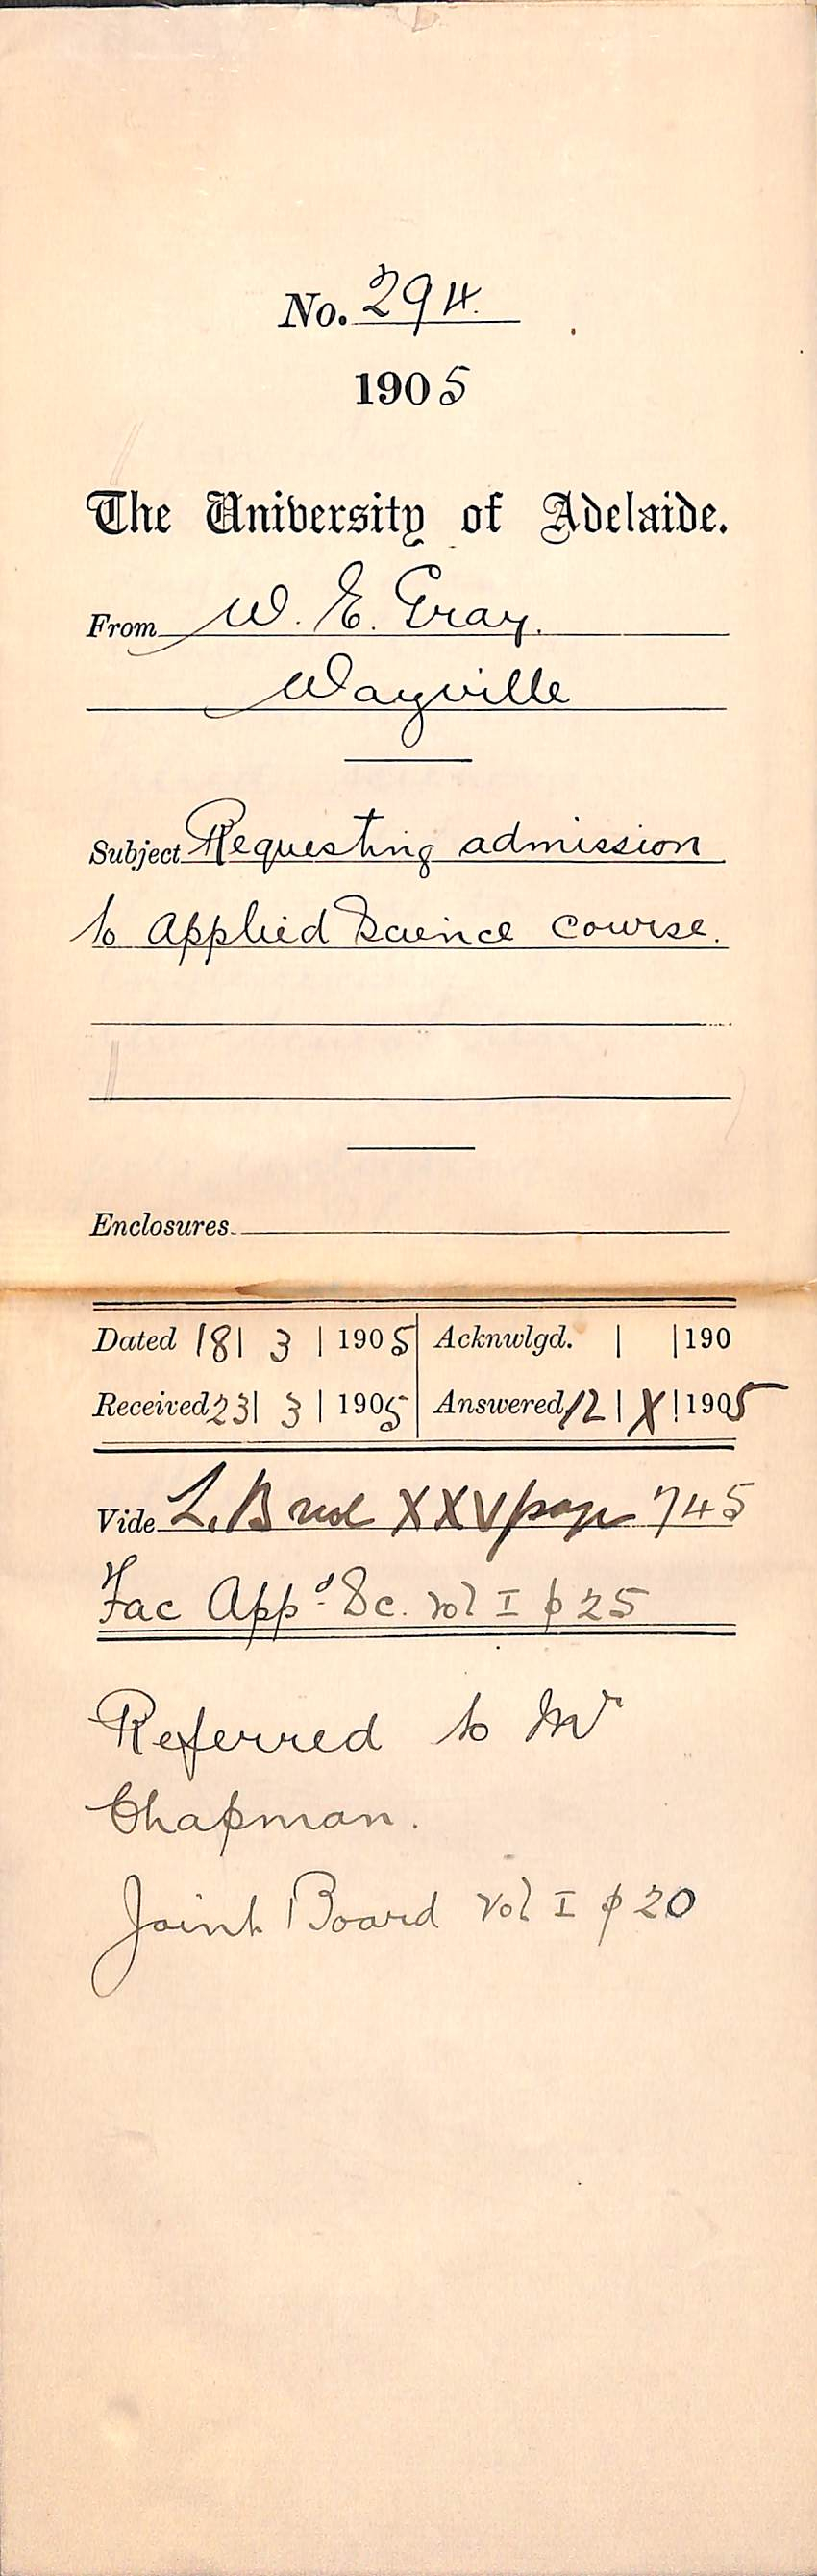 No. 294.
1905
The University of Adelaide.
From W. E. Gray.
Wayville
Subject Requesting admission
to Applied Science course.
Enclosures
Dated 18| 3 | 1905 | Acknwlgd. | |190
Received 23| 3 | 1905 | Answered 12 | X | 1905
Vide L.B vol XXV page 745
Fac App.d Sc. vol I p 25
Referred to Mr
Chapman.
Joint Board vol I p 20